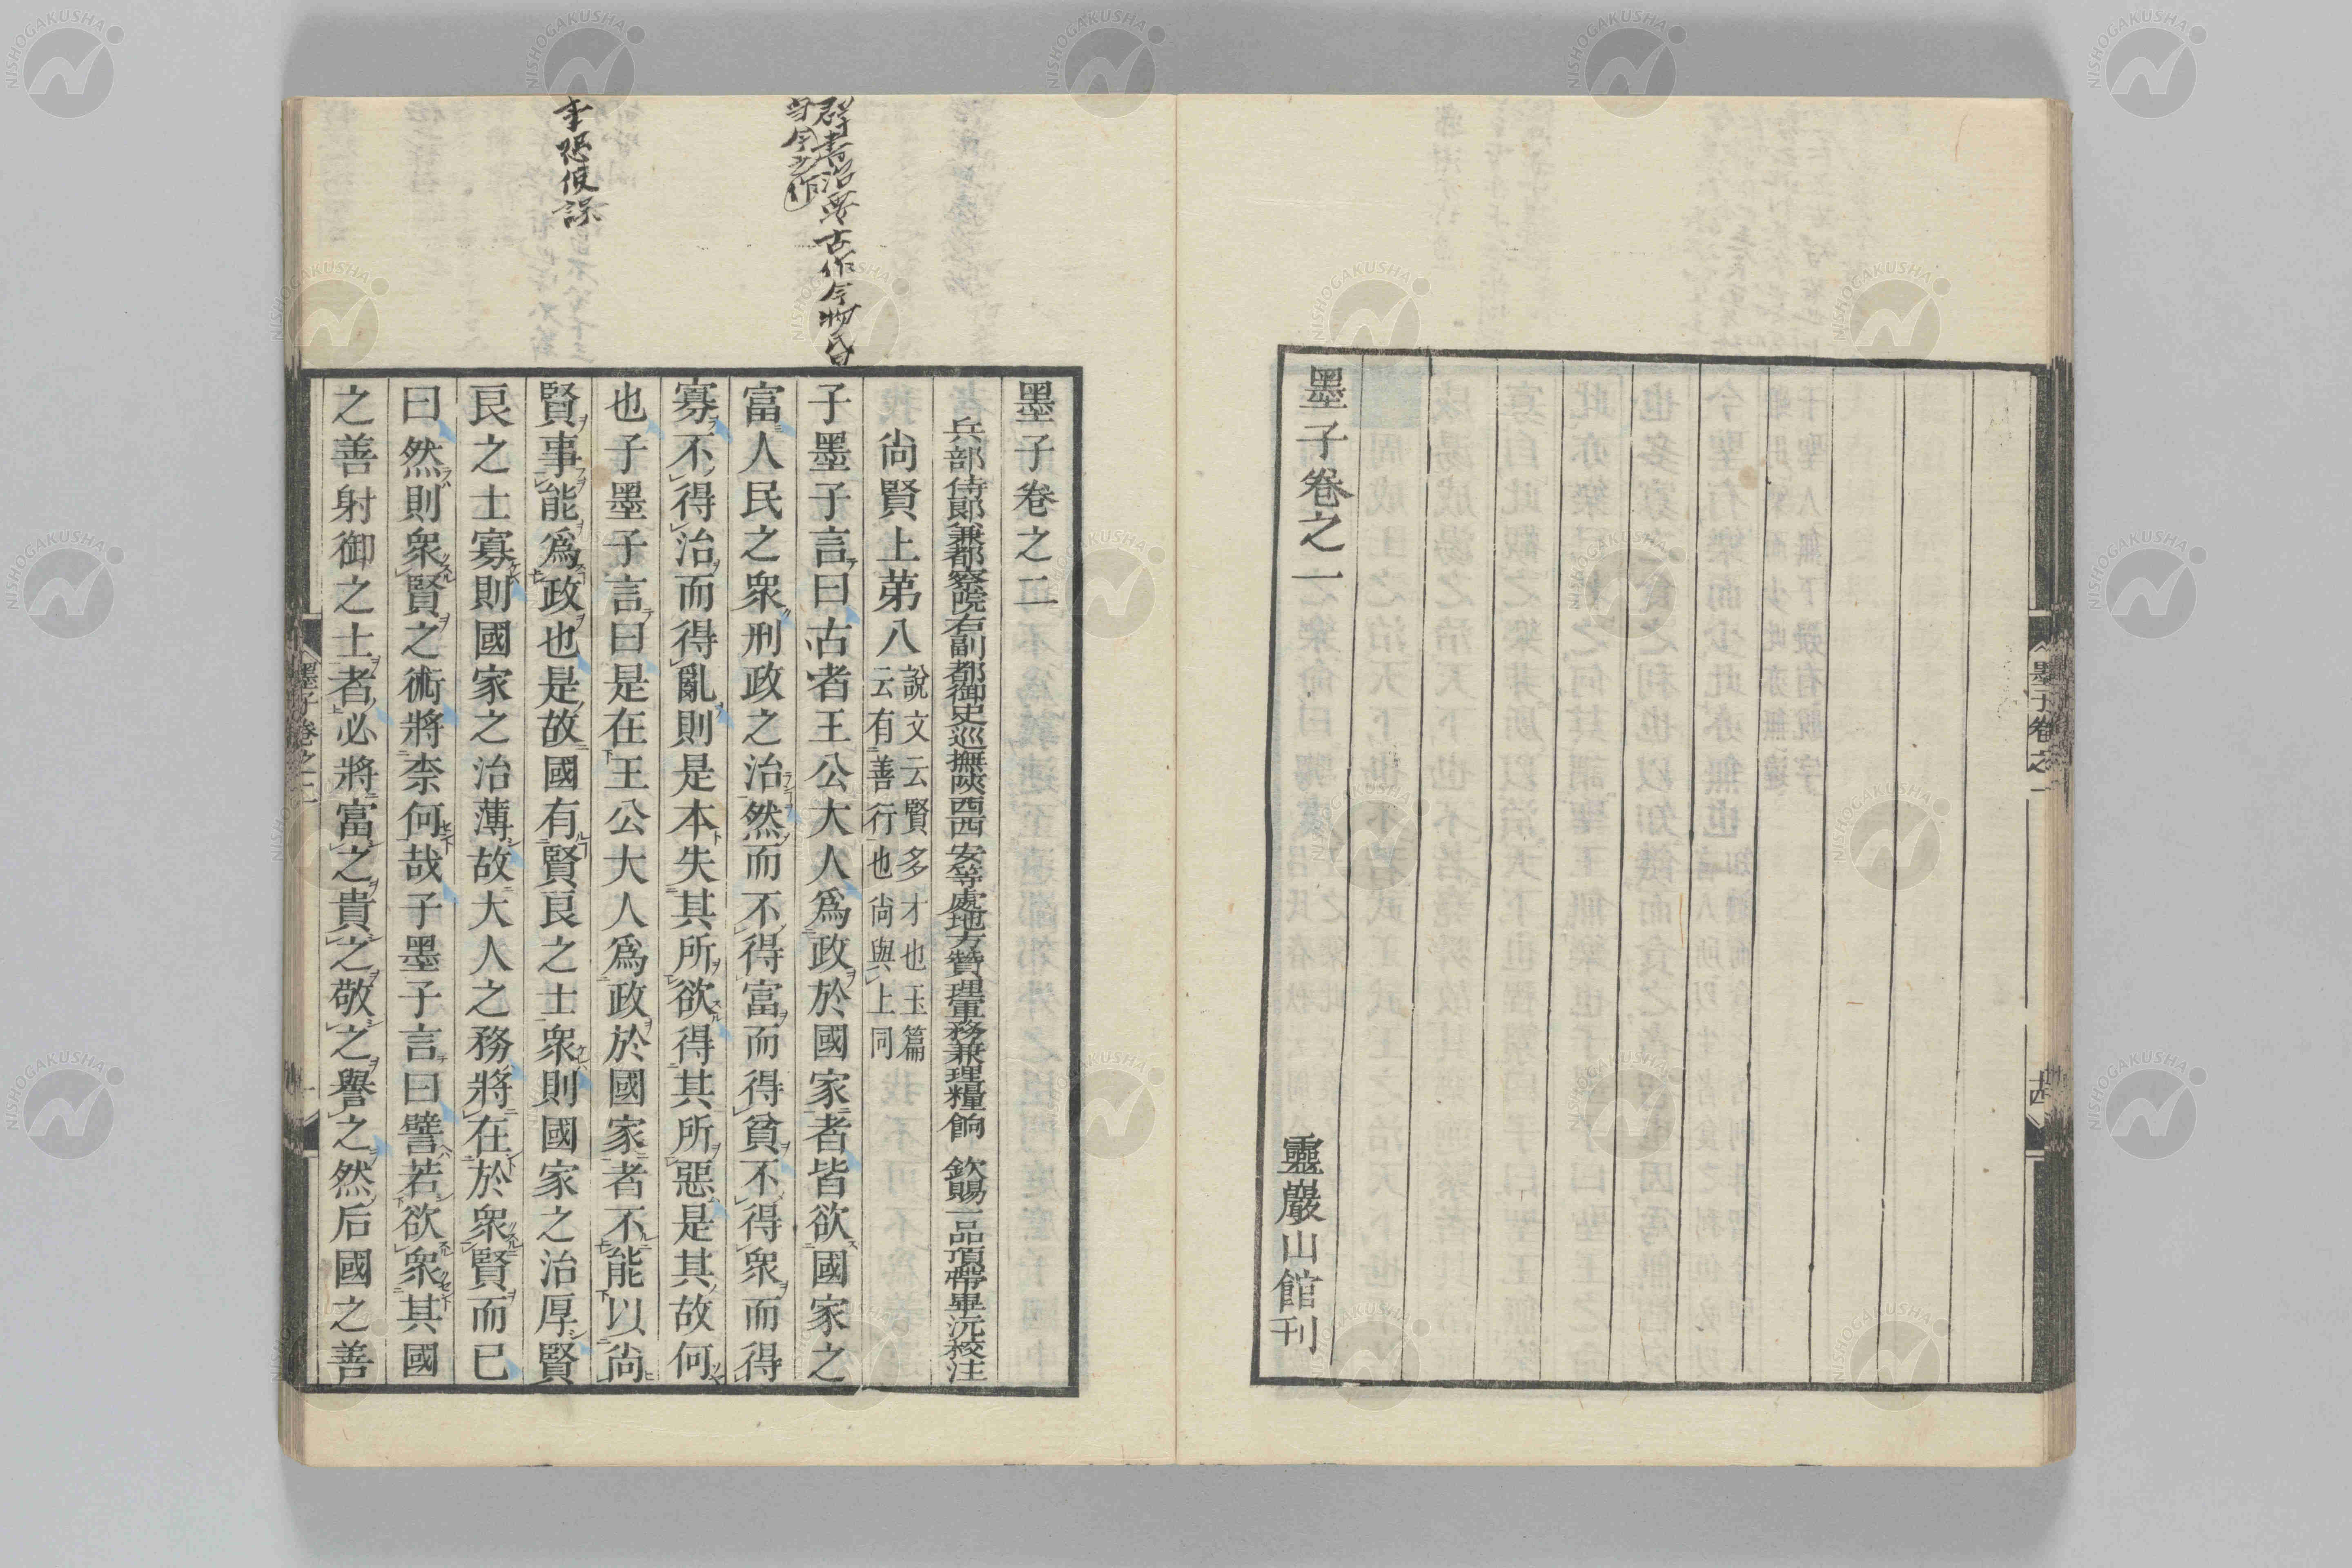 墨子卷之一
靈巖山館刊
墨子卷之一
十四
墨子卷之二
兵部侍郎兼都察院右副都御史巡撫陝西西安等處地方贊理軍務兼理糧餉 欽賜一品頂帶畢沅校注
尙賢上第八
說文云賢多才也玉篇
云有善行也尙與上同
子墨子言曰古者王公大人爲政於國家者皆欲國家之
富人民之衆刑政之治然而不得富而得貧不得衆而得
寡不得治而得亂則是本失其所欲得其所惡是其故何
也子墨子言曰是在王公大人爲政於國家者不能以尙
賢事能爲政也是故國有賢良之士衆則國家之治厚賢
良之士寡則國家之治薄故大人之務將在於衆賢而已
曰然則衆賢之術將柰何哉子墨子言曰譬若欲衆其國
之善射御之士者必將富之貴之敬之譽之然后國之善
墨子卷之二
一
群書治要古作今
NISHOGAKUSHA